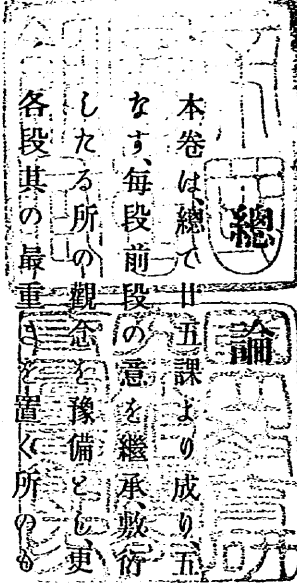 總論
本卷は、總て廿五課より成り、五
なす、每段前段の意を繼承、敷衍
したる所の觀念を豫備とし、更
各段其の最重きを置く所のも